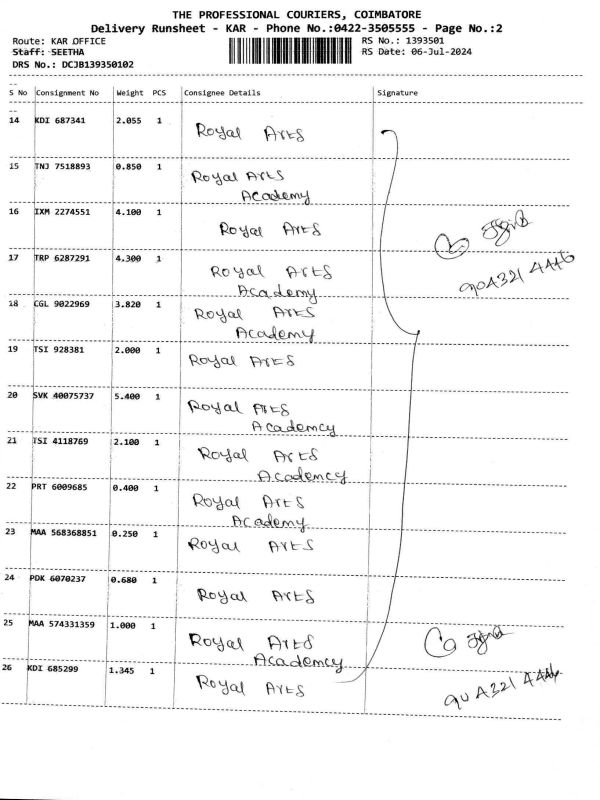 THE PROFESSIONAL COURIERS, COIMBATORE
Delivery Runsheet - KAR - Phone No.:0422-3505555 - Page No.:2
Route: KAR OFFICE RS No.: 1393501
Staff: SEETHA RS Date: 06-Jul-2024
DRS No.: DCJB139350102
S No Consignment No Weight PCS Consignee Details Signature
14 KDI 687341 2.055 1 Royal Arts
15 TNJ 7518893 0.850 1 Royal Arts
Academy
16 IXM 2274551 4.100 1 Royal Arts
17 TRP 6287291 4.300 1 Royal Arts
Academy
904321 4446
18 CGL 9022969 3.820 1 Royal Arts
Academy
19 TSI 928381 2.000 1 Royal Arts
20 SVK 40075737 5.400 1 Royal Arts
Academcy
21 TSI 4118769 2.100 1 Royal Arts
Academcy
22 PRT 6009685 0.400 1 Royal Arts
Academy
23 MAA 568368851 0.250 1 Royal Arts
24 PDK 6070237 0.680 1 Royal Arts
25 MAA 574331359 1.000 1 Royal Arts
Academcy
26 KDI 685299 1.345 1 Royal Arts
904321 4446